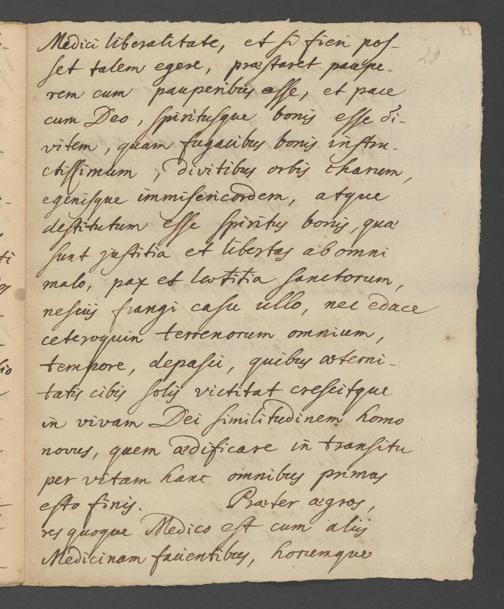 83
29
Medici liberalitate, et si fieri pos-
set talem egere, præstaret paupe-
rem cum pauperibus esse, et pace
cum Deo, spiritusque bonis esse di-
vitem, quam fugacibus bonis instru-
ctissimum, divitibus orbis charum,
egenisque immisericordem, atque
destitutum esse spiritus bonis, quæ
sunt justitia et libertas ab omni
malo, pax et lætitia sanctorum,
nesciis frangi casu ullo, nec edace
ceteroquin terrenorum omnium,
tempore, depasci, quibus æterni-
tatis cibis solis victitat crescitque
in vivam Dei similitudinem homo
novus, quem ædificare in transitu
per vitam hanc omnibus primas
esto finis. Præter ægros,
res quoque Medico est cum aliis
Medicinam faventibus, horumque